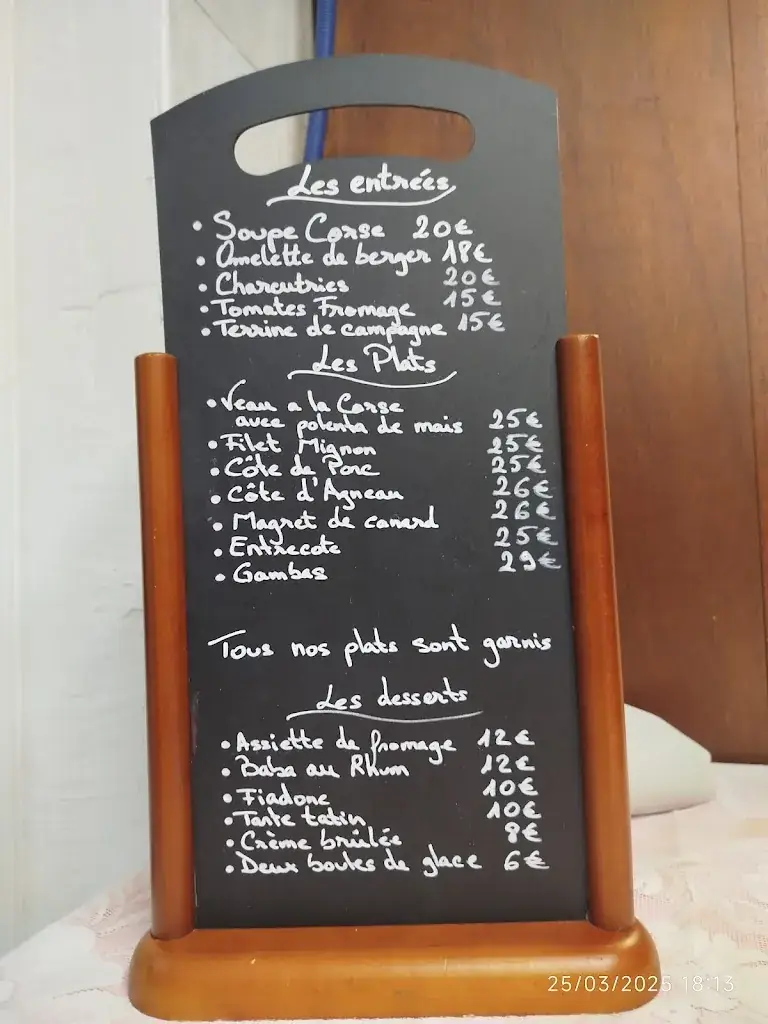 Les entrées
• Soupe Corse 20€
• Omelette de berger 18€
• Charcutries 20€
• Tomates Fromage 15€
• Terrine de campagne 15€
Les Plats
• Veau a la Corse
avec polenta de mais 25€
• Filet Mignon 25€
• Côte de Porc 25€
• Côte d'Agneau 26€
• Magret de canard 26€
• Entrecote 25€
• Gambas 29€
Tous nos plats sont garnis
Les desserts
• Assiette de fromage 12€
• Baba au Rhum 12€
• Fiadone 10€
• Tarte tatin 10€
• Crème brûlée 8€
• Deux boules de glace 6€
25/03/2025 18:13